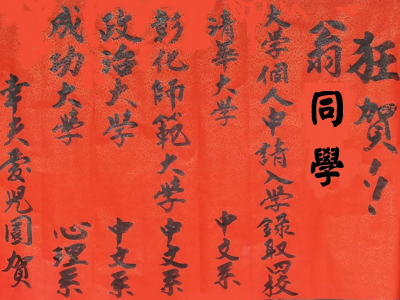 狂賀！！
翁同學
大學個人申請入學錄取四校
清華大學 中文系
彰化師範大學中文系
政治大學 中文系
成功大學 心理系
幸夫愛兒園賀